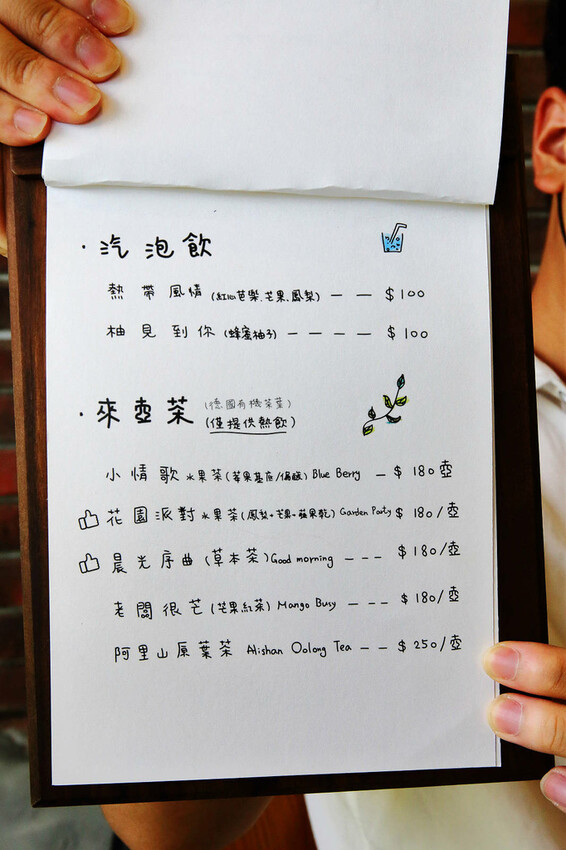 · 汽泡飲
熱帶風情 (紅心芭樂、芒果、鳳梨) — — $100
柚見到你 (蜂蜜柚子) — — — — $100
· 來壺茶 (德國有機茶葉)
(僅提供熱飲)
小情歌 水果茶 (莓果基底/偏酸) Blue Berry — $180壺
花園派對 水果茶 (鳳梨+芒果+蘋果乾) Garden Party $180/壺
晨光序曲 (草本茶) Good morning — — — $180/壺
老闆很芒 (芒果紅茶) Mango Busy — — — $180/壺
阿里山原葉茶 Alishan Oolong Tea — — $250/壺